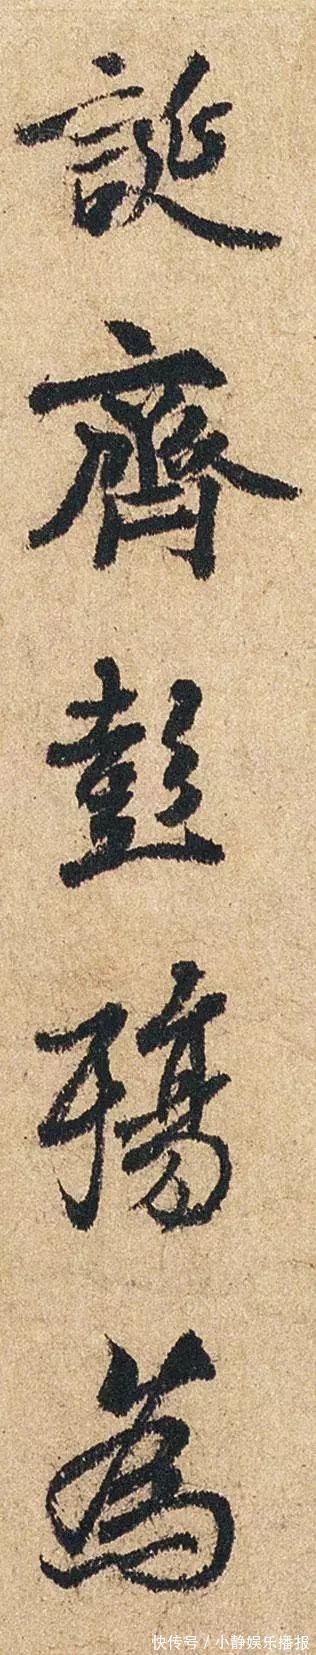 誕齊彭殤為
快传号/小静娱乐播报